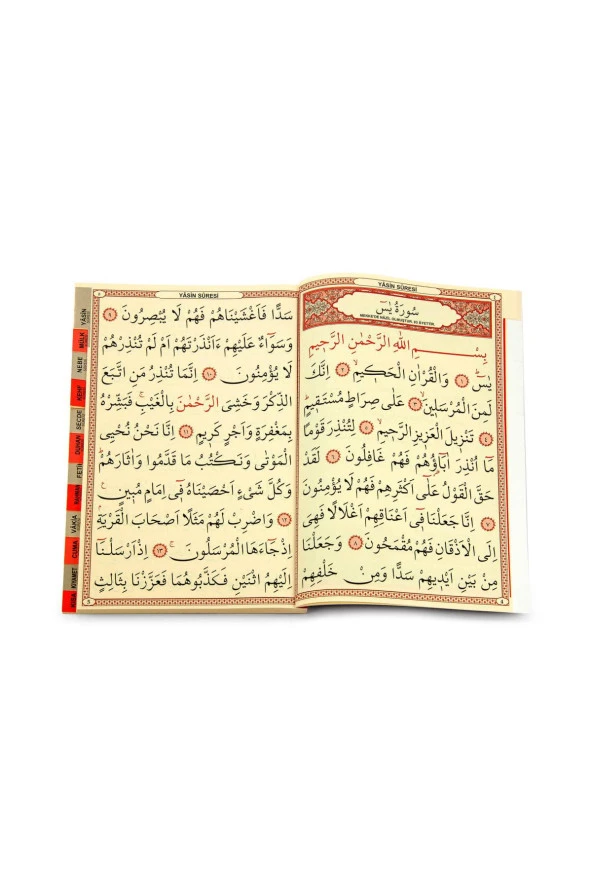 YÂSİN SÛRESİ
٤
سُورَةُ يٰسٓ
MEKKE'DE NAZİL OLMUŞTUR. 83 ÂYETTİR.
بِسْمِ اللّٰهِ الرَّحْمٰنِ الرَّحِيمِ
يٰسٓ ﴿١﴾ وَالْقُرْاٰنِ الْحَكٖيمِۙ ﴿٢﴾ اِنَّكَ
لَمِنَ الْمُرْسَلٖينَۙ ﴿٣﴾ عَلٰى صِرَاطٍ مُسْتَقٖيمٍؕ
﴿٤﴾ تَنْزٖيلَ الْعَزٖيزِ الرَّحٖيمِۙ ﴿٥﴾ لِتُنْذِرَ قَوْمًا
مَٓا اُنْذِرَ اٰبَٓاؤُ۬هُمْ فَهُمْ غَافِلُونَ ﴿٦﴾ لَقَدْ
حَقَّ الْقَوْلُ عَلٰٓى اَكْثَرِهِمْ فَهُمْ لَا يُؤْمِنُونَ
﴿٧﴾ اِنَّا جَعَلْنَا فٖٓى اَعْنَاقِهِمْ اَغْلَالًا فَهِىَ
اِلَى الْاَذْقَانِ فَهُمْ مُقْمَحُونَ ﴿٨﴾ وَجَعَلْنَا
مِنْ بَيْنِ اَيْدٖيهِمْ سَدًّا وَمِنْ خَلْفِهِمْ
4
٥
YÂSİN SÛRESİ
سَدًّا فَاَغْشَيْنَاهُمْ فَهُمْ لَا يُبْصِرُونَ ﴿٩﴾
وَسَوَٓاءٌ عَلَيْهِمْ ءَاَنْذَرْتَهُمْ اَمْ لَمْ تُنْذِرْهُمْ
لَا يُؤْمِنُونَ ﴿١٠﴾ اِنَّمَا تُنْذِرُ مَنِ اتَّبَعَ
الذِّكْرَ وَخَشِىَ الرَّحْمٰنَ بِالْغَيْبِۚ فَبَشِّرْهُ
بِمَغْفِرَةٍ وَاَجْرٍ كَرٖيمٍ ﴿١١﴾ اِنَّا نَحْنُ نُحْيِى
الْمَوْتٰى وَنَكْتُبُ مَا قَدَّمُوا وَاٰثَارَهُمْؕ
وَكُلَّ شَىْءٍ اَحْصَيْنَاهُ فٖٓى اِمَامٍ مُبٖينٍ
﴿١٢﴾ وَاضْرِبْ لَهُمْ مَثَلًا اَصْحَابَ الْقَرْيَةِۘ
اِذْ جَٓاءَهَا الْمُرْسَلُونَۚ ﴿١٣﴾ اِذْ اَرْسَلْنَٓا
اِلَيْهِمُ اثْنَيْنِ فَكَذَّبُوهُمَا فَعَزَّزْنَا بِثَالِثٍ
5
YÂSİN
MÜLK
NEBE
KEHF
SECDE
DUHAN
FETİH
RAHMAN
VÂKIA
CUMA
KIYAMET
KISA